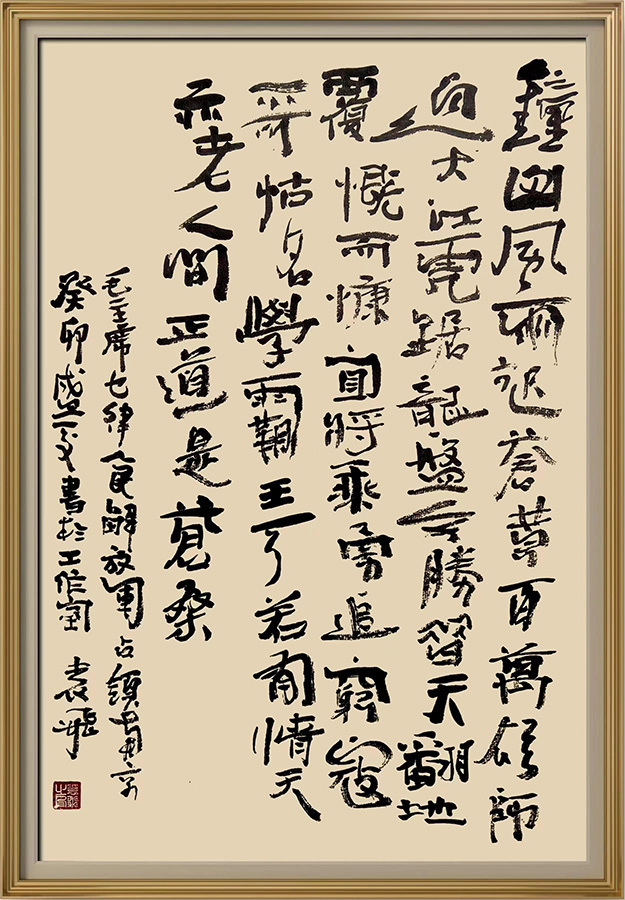 鐘山風雨起蒼黃百萬雄師
過大江虎踞龍盤今勝昔天翻地
覆慨而慷宜將乘勇追窮寇
不可沽名學霸王天若有情天
亦老人間正道是滄桑
毛主席七律人民解放軍占領南京
癸卯盛夏書於工作室